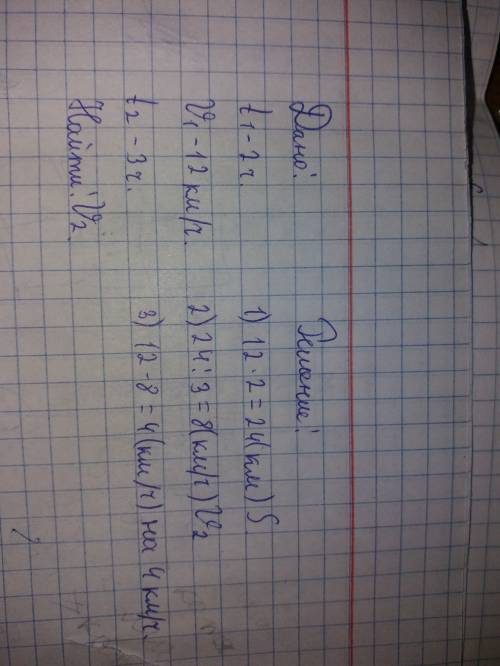 Дано:
t₁ - 2 ч.
V₁ - 12 км/ч.
t₂ - 3 ч.
Найти: V₂.
Решение:
1) 12 · 2 = 24 (км) S
2) 24 : 3 = 8 (км/ч) V₂
3) 12 - 8 = 4 (км/ч) на 4 км/ч.